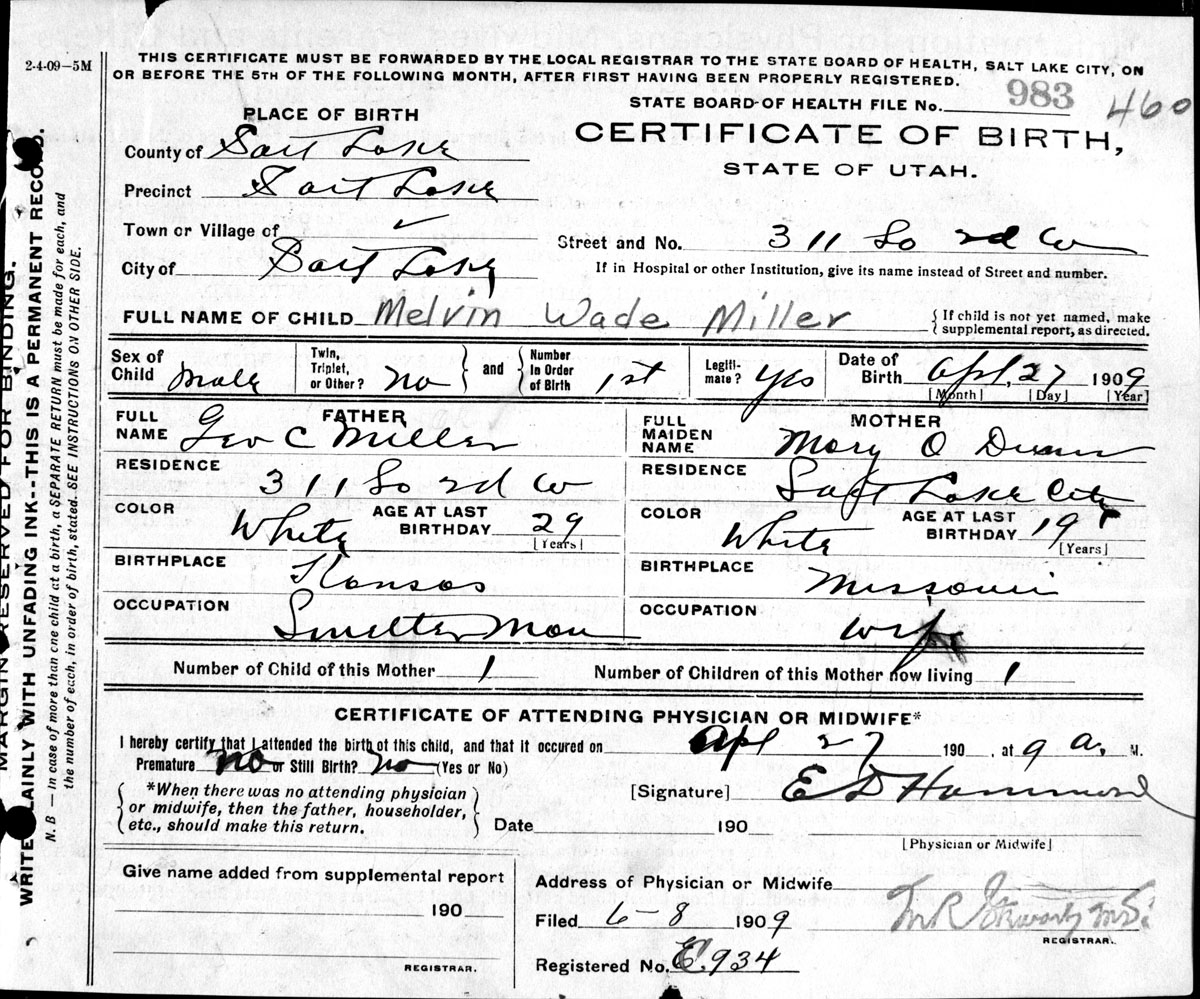 2-4-09-5M
THIS CERTIFICATE MUST BE FORWARDED BY THE LOCAL REGISTRAR TO THE STATE BOARD OF HEALTH, SALT LAKE CITY, ON
OR BEFORE THE 5TH OF THE FOLLOWING MONTH, AFTER FIRST HAVING BEEN PROPERLY REGISTERED.
STATE BOARD OF HEALTH FILE No. 983 460
PLACE OF BIRTH
CERTIFICATE OF BIRTH,
STATE OF UTAH.
County of Salt Lake
Precinct Salt Lake
Town or Village of ✓
Street and No. 311 So 2d W
City of Salt Lake
If in Hospital or other Institution, give its name instead of Street and number.
FULL NAME OF CHILD Melvin Wade Miller { If child is not yet named, make
supplemental report, as directed.
Sex of Child Male Twin, Triplet, or Other? No } and { Number In Order of Birth 1st Legiti-mate? Yes Date of Birth Apl, 27 1909
[Month] [Day] [Year]
FATHER
FULL NAME Geo C Miller
RESIDENCE
311 So 2d W
COLOR White AGE AT LAST BIRTHDAY 29
[Years]
BIRTHPLACE Kansas
OCCUPATION Smelter Man
MOTHER
FULL MAIDEN NAME Mary O
RESIDENCE
Salt Lake City
COLOR White AGE AT LAST BIRTHDAY 19
[Years]
BIRTHPLACE Missouri
OCCUPATION wife
Number of Child of this Mother 1 Number of Children of this Mother now living 1
CERTIFICATE OF ATTENDING PHYSICIAN OR MIDWIFE*
I hereby certify that I attended the birth of this child, and that it occured on Apl 27 190 , at 9 a. M.
Premature No or Still Birth? No (Yes or No)
{ *When there was no attending physician
or midwife, then the father, householder,
etc., should make this return. }
[Signature] E D Hammond
Date 190
[Physician or Midwife]
Give name added from supplemental report
190
REGISTRAR.
Address of Physician or Midwife
Filed 6-8 1909
M R
REGISTRAR.
Registered No. E.934
MARGIN RESERVED FOR BINDING.
WRITE PLAINLY WITH UNFADING INK--THIS IS A PERMANENT RECORD.
N. B — In case of more than one child at a birth, a SEPARATE RETURN must be made for each, and
the number of each, in order of birth, stated. SEE INSTRUCTIONS ON OTHER SIDE.